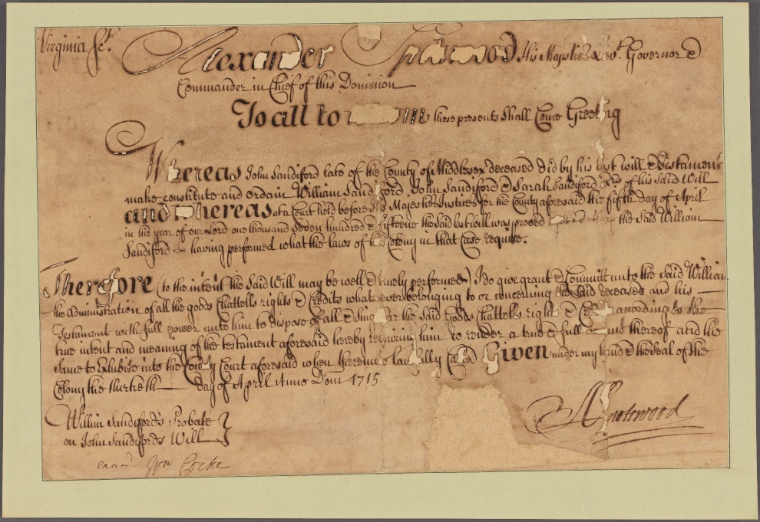 Virginia Sct. Alexander Spotswood His Majesties Govr. Governor &
Commander in Chief of this Dominion
To all to these presents Shall Come Greeting
Whereas John Sandiford late of the County of Middlesex deceased did by his last will & Testament
make constitute and ordain William Sandiford John Sandiford & Sarah Sandiford of his Said Will
and Whereas at a Court held before His Majesties Justices for the County aforesaid the fifth day of April
in the year of our Lord one thousand Seven hundred & fifteene the Said last will was proved the Said William
Sandiford having performed what the laws of this Colony in that Case require.
Therefore (to the intent the Said Will may be well & truely performed) I do give grant & Committ unto the Said William
the administration of all the goods Chattells rights & Credits whatsoever belonging to or concerning the said deceased and his
Testament with full power unto him to dispose of all & Singular the Said Goods Chattells rights & according to the
true intent and meaning of the testament aforesaid hereby requiring him to render a true & full thereof and the
Same to Exhibite into the County Court aforesaid when thereunto lawfully Given under my hand & the Seal of the
Colony the thirtieth day of April Anno Dom 1715
William Sandiford's Probate
on John Sandifords Will
ASpotswood
Wm Cocke